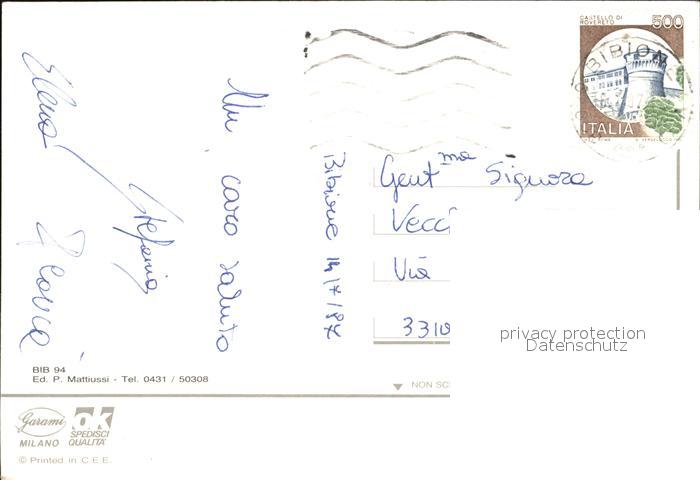 CASTELLO DI
ROVERETO
500
BIBIONE
ITALIA
Un caro saluto
Stefania
Bibione 14/7/87
Gent.ma Signora
Vecc
Via
3310
privacy protection
Datenschutz
BIB 94
Ed. P. Mattiussi - Tel. 0431 / 50308
NON SC
Garami
MILANO
ok
SPEDISCI
QUALITÀ
© Printed in C.E.E.